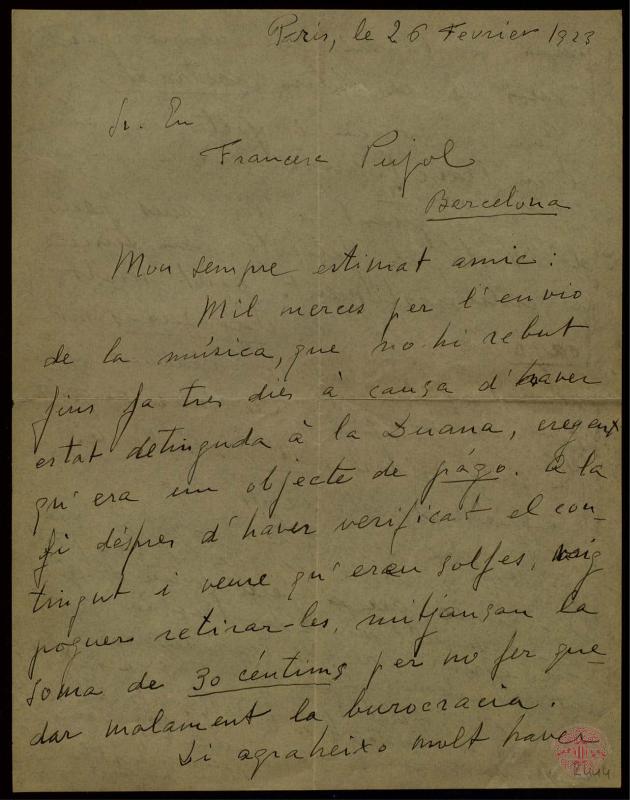 Paris, le 26 Fevrier 1923
Sr. En
Francesc Pujol
Barcelona
Mon sempre estimat amic:
Mil merces per l'envio
de la música, que no hi rebut
fins fa tres dies à causa d'haver
estat detinguda à la Duana, cregent
qu'era un objecte de págo. A la
fi déspres d'haver verificat el con-
tingut i veure qu'eran solfes, vaig
poguer retirar-les, mitjançan la
soma de 30 céntims per no fer que-
dar malament la burocracia.
Li agraheixo molt haver
2444